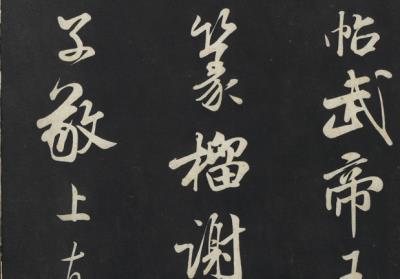 帖武帝王
篆榴谢
子敬上